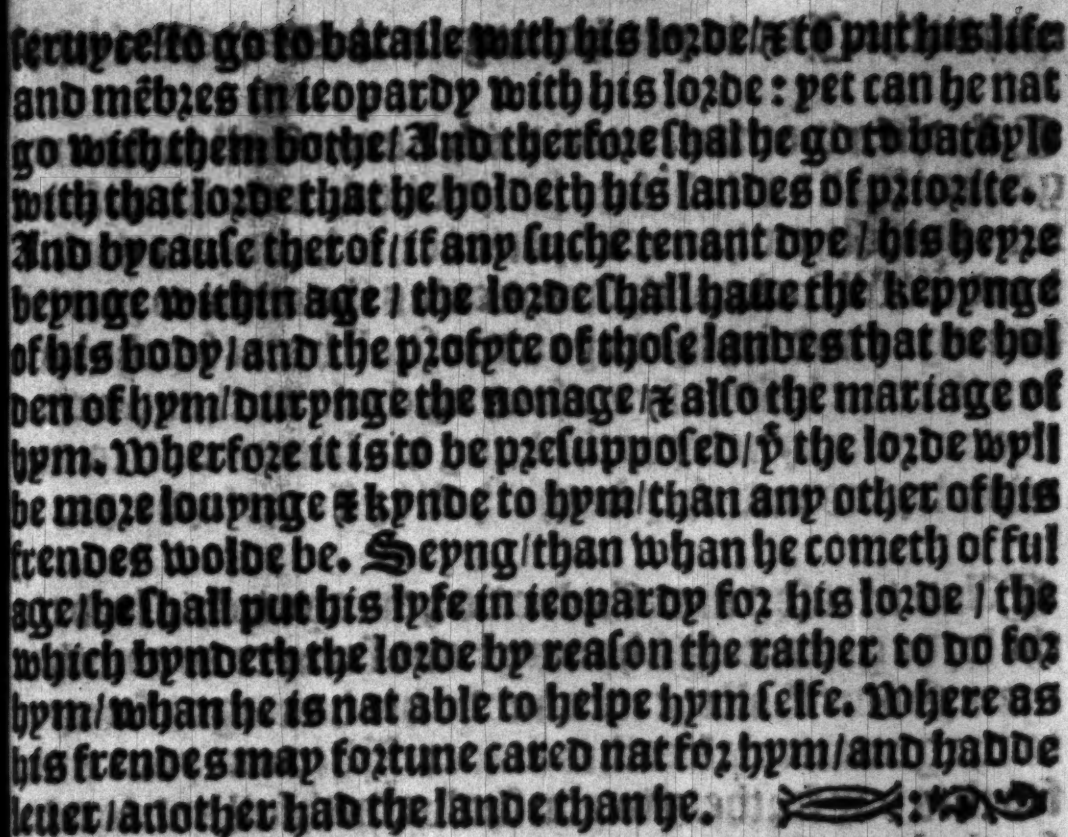 seruyce/to go to bataile with his lorde/⁊ to put his life
and mẽbres in ieopardy with his lorde: yet can he nat
go with them bothe/ And therfore shal he go to batayle
with that lorde that he holdeth his landes of priorite.
And bycause therof/if any suche tenant dye / his heyre
beynge within age / the lorde shall haue the kepynge
of his body/and the profyte of those landes that be hol
den of hym/durynge the nonage/⁊ also the mariage of
hym. Wherfore it is to be presupposed/yͭ the lorde wyll
be more louynge ⁊ kynde to hym/than any other of his
frendes wolde be. Seyng/than whan he cometh of ful
age/he shall put his lyfe in ieopardy for his lorde / the
which byndeth the lorde by reason the rather to do for
hym/whan he is nat able to helpe hym selfe. Where as
his frendes may fortune cared nat for hym/and hadde
leuer/another had the lande than he.